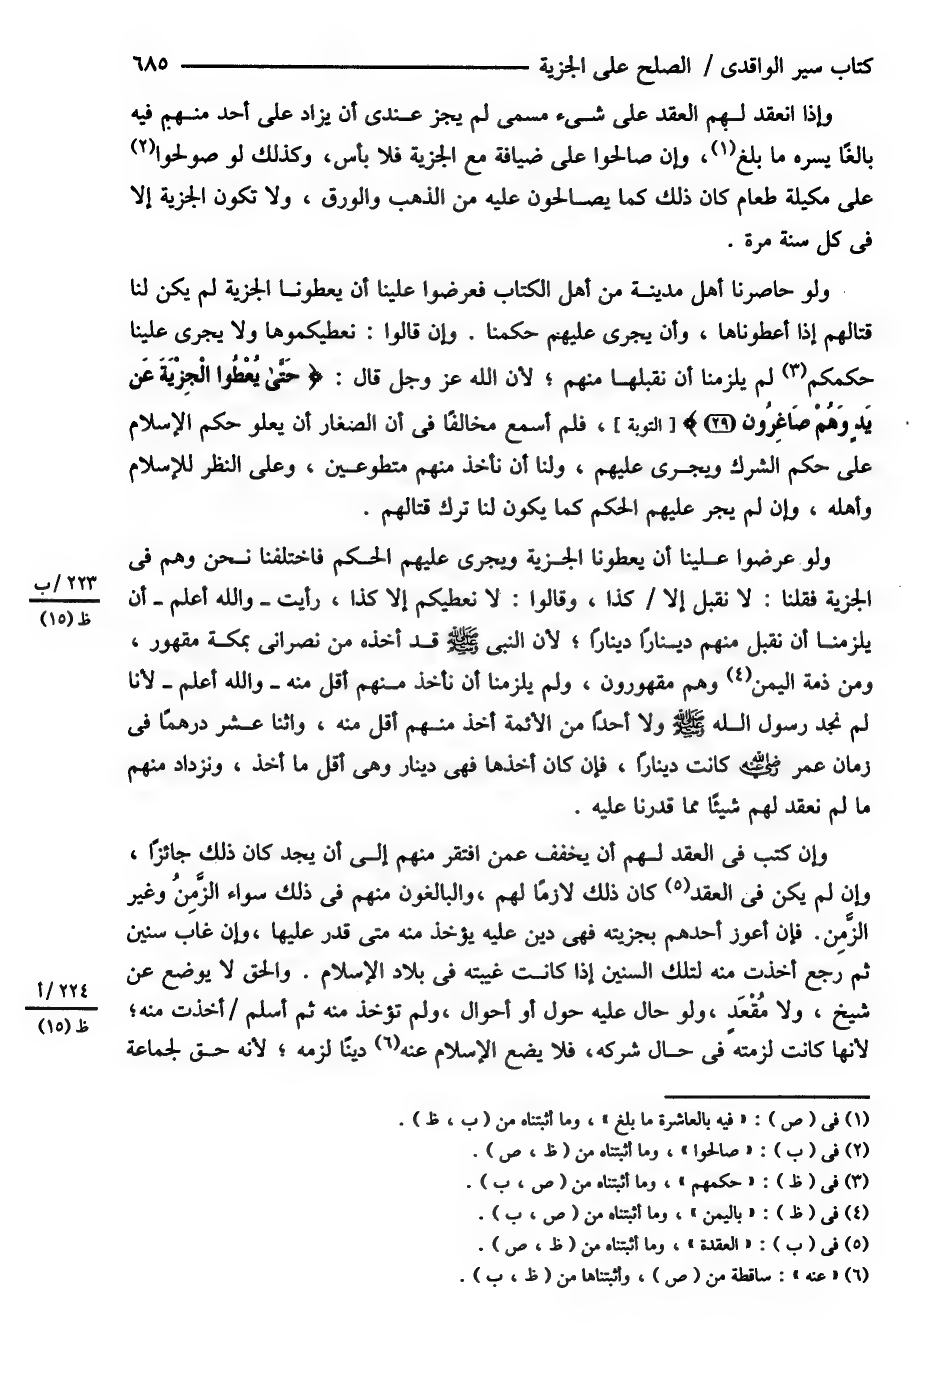 كتاب سير الواقدى / الصلح على الجزية ٦٨٥
وإذا انعقد لـهم العقد على شـىء مسمى لم يجز عـندى أن يزاد على أحد منـهم فيه
بالغًا يسره ما بلغ(١)، وإن صالحوا على ضيافة مع الجزية فلا بأس، وكذلك لو صولحوا(٢)
على مكيلة طعام كان ذلك كما يصـالحون عليه من الذهب والورق ، ولا تكون الجزية إلا
فى كل سنة مرة .
ولو حاصرنا أهل مدينـة من أهل الكتاب فعرضوا علينا أن يعطونـا الجزية لم يكن لنا
قتالهم إذا أعطوناها ، وأن يجرى عليهم حكمنا . وإن قالوا : نعطيكموها ولا يجرى علينا
حكمكم(٣) لم يلزمنا أن نقبلهـا منهم ؛ لأن الله عز وجل قال : ﴿ حَتَّىٰ يُعْطُوا الْجِزْيَةَ عَن
يَدٍ وَهُمْ صَاغِرُون (٢٩) ﴾ [ التوبة ] ، فلم أسمع مخالفًا فى أن الصغار أن يعلو حكم الإسلام
على حكم الشرك ويجـرى عليهم ، ولنا أن نأخذ منهم متطوعـين ، وعلى النظر للإسلام
وأهله ، وإن لم يجر عليهم الحكم كما يكون لنا ترك قتالهم .
ولو عرضوا عـلينا أن يعطونا الجـزية ويجرى عليهم الحـكم فاختلفنا نـحن وهم فى
٢٢٣ /ب
ظ (١٥)
الجزية فقلنا : لا نقبل إلا / كذا ، وقالوا : لا نعطيكم إلا كذا ، رأيت ـ والله أعلم ـ أن
يلزمنـا أن نقبل منهم ديـنارًا دينارًا ؛ لأن النبى ﷺ قـد أخذه من نصرانى بمكـة مقهور ،
ومن ذمة اليمن(٤) وهم مقهورون ، ولم يلزمنا أن نأخذ مـنهم أقل منه ـ والله أعلم ـ لأنا
لم نجد رسول الـله ﷺ ولا أحدًا من الأئمة أخذ منـهم أقل منه ، واثنا عـشر درهمًا فى
زمان عمر رضي الله عنه كانت دينارًا ، فإن كان أخذها فهى دينار وهى أقل ما أخذ ، ونزداد منهم
ما لم نعقد لهم شيئًا مما قدرنا عليه .
وإن كتب فى العقد لـهم أن يخفف عمن افتقر منهم إلـى أن يجد كان ذلك جائزًا ،
وإن لم يكن فى العقد(٥) كان ذلك لازمًا لهم ،والبالغون منهم فى ذلك سواء الزَّمِنُ وغير
الزَّمِن. فإن أعوز أحدهم بجزيته فهى دين عليه يؤخذ منه متى قدر عليها ،وإن غاب سنين
ثم رجع أخذت منه لتلك السنين إذا كانـت غيبته فى بلاد الإسلام . والحق لا يوضع عن
٢٢٤ /أ
ظ (١٥)
شيخ ، ولا مُقْعَدٍ ،ولو حال عليه حول أو أحوال ،ولم تؤخذ منه ثم أسلم / أخذت منه؛
لأنها كانت لزمته فى حـال شركه، فلا يضع الإسلام عنه(٦) دينًا لزمه ؛ لأنه حـق لجماعة
(١) فى ( ص ) : « فيه بالعاشرة ما بلغ » ، وما أثبتناه من ( ب ، ظ ) .
(٢) فى ( ب ) : « صالحوا » ، وما أثبتناه من ( ظ ، ص ) .
(٣) فى ( ظ ) : « حكمهم » ، وما أثبتناه من ( ص ، ب ) .
(٤) فى ( ظ ) : « باليمن » ، وما أثبتناه من ( ص ، ب ) .
(٥) فى ( ب ) : « العقدة » ، وما أثبتناه من ( ظ ، ص ) .
(٦) « عنه » : ساقطة من ( ص ) ، وأثبتناها من ( ظ ، ب ) .